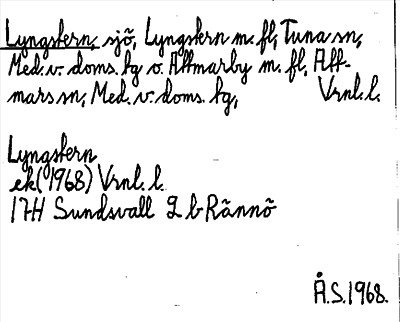 Lyngstern, sjö, Lyngstern m. fl., Tuna sn,
Med. v. doms. tg o. Attmarby m. fl. Att-
mars sn, Med. v. doms. tg, Vrnl. l.
Lyngstern
ek (1968) Vrnl. l.
17H Sundsvall 2 b Rännö
Å.S. 1968.